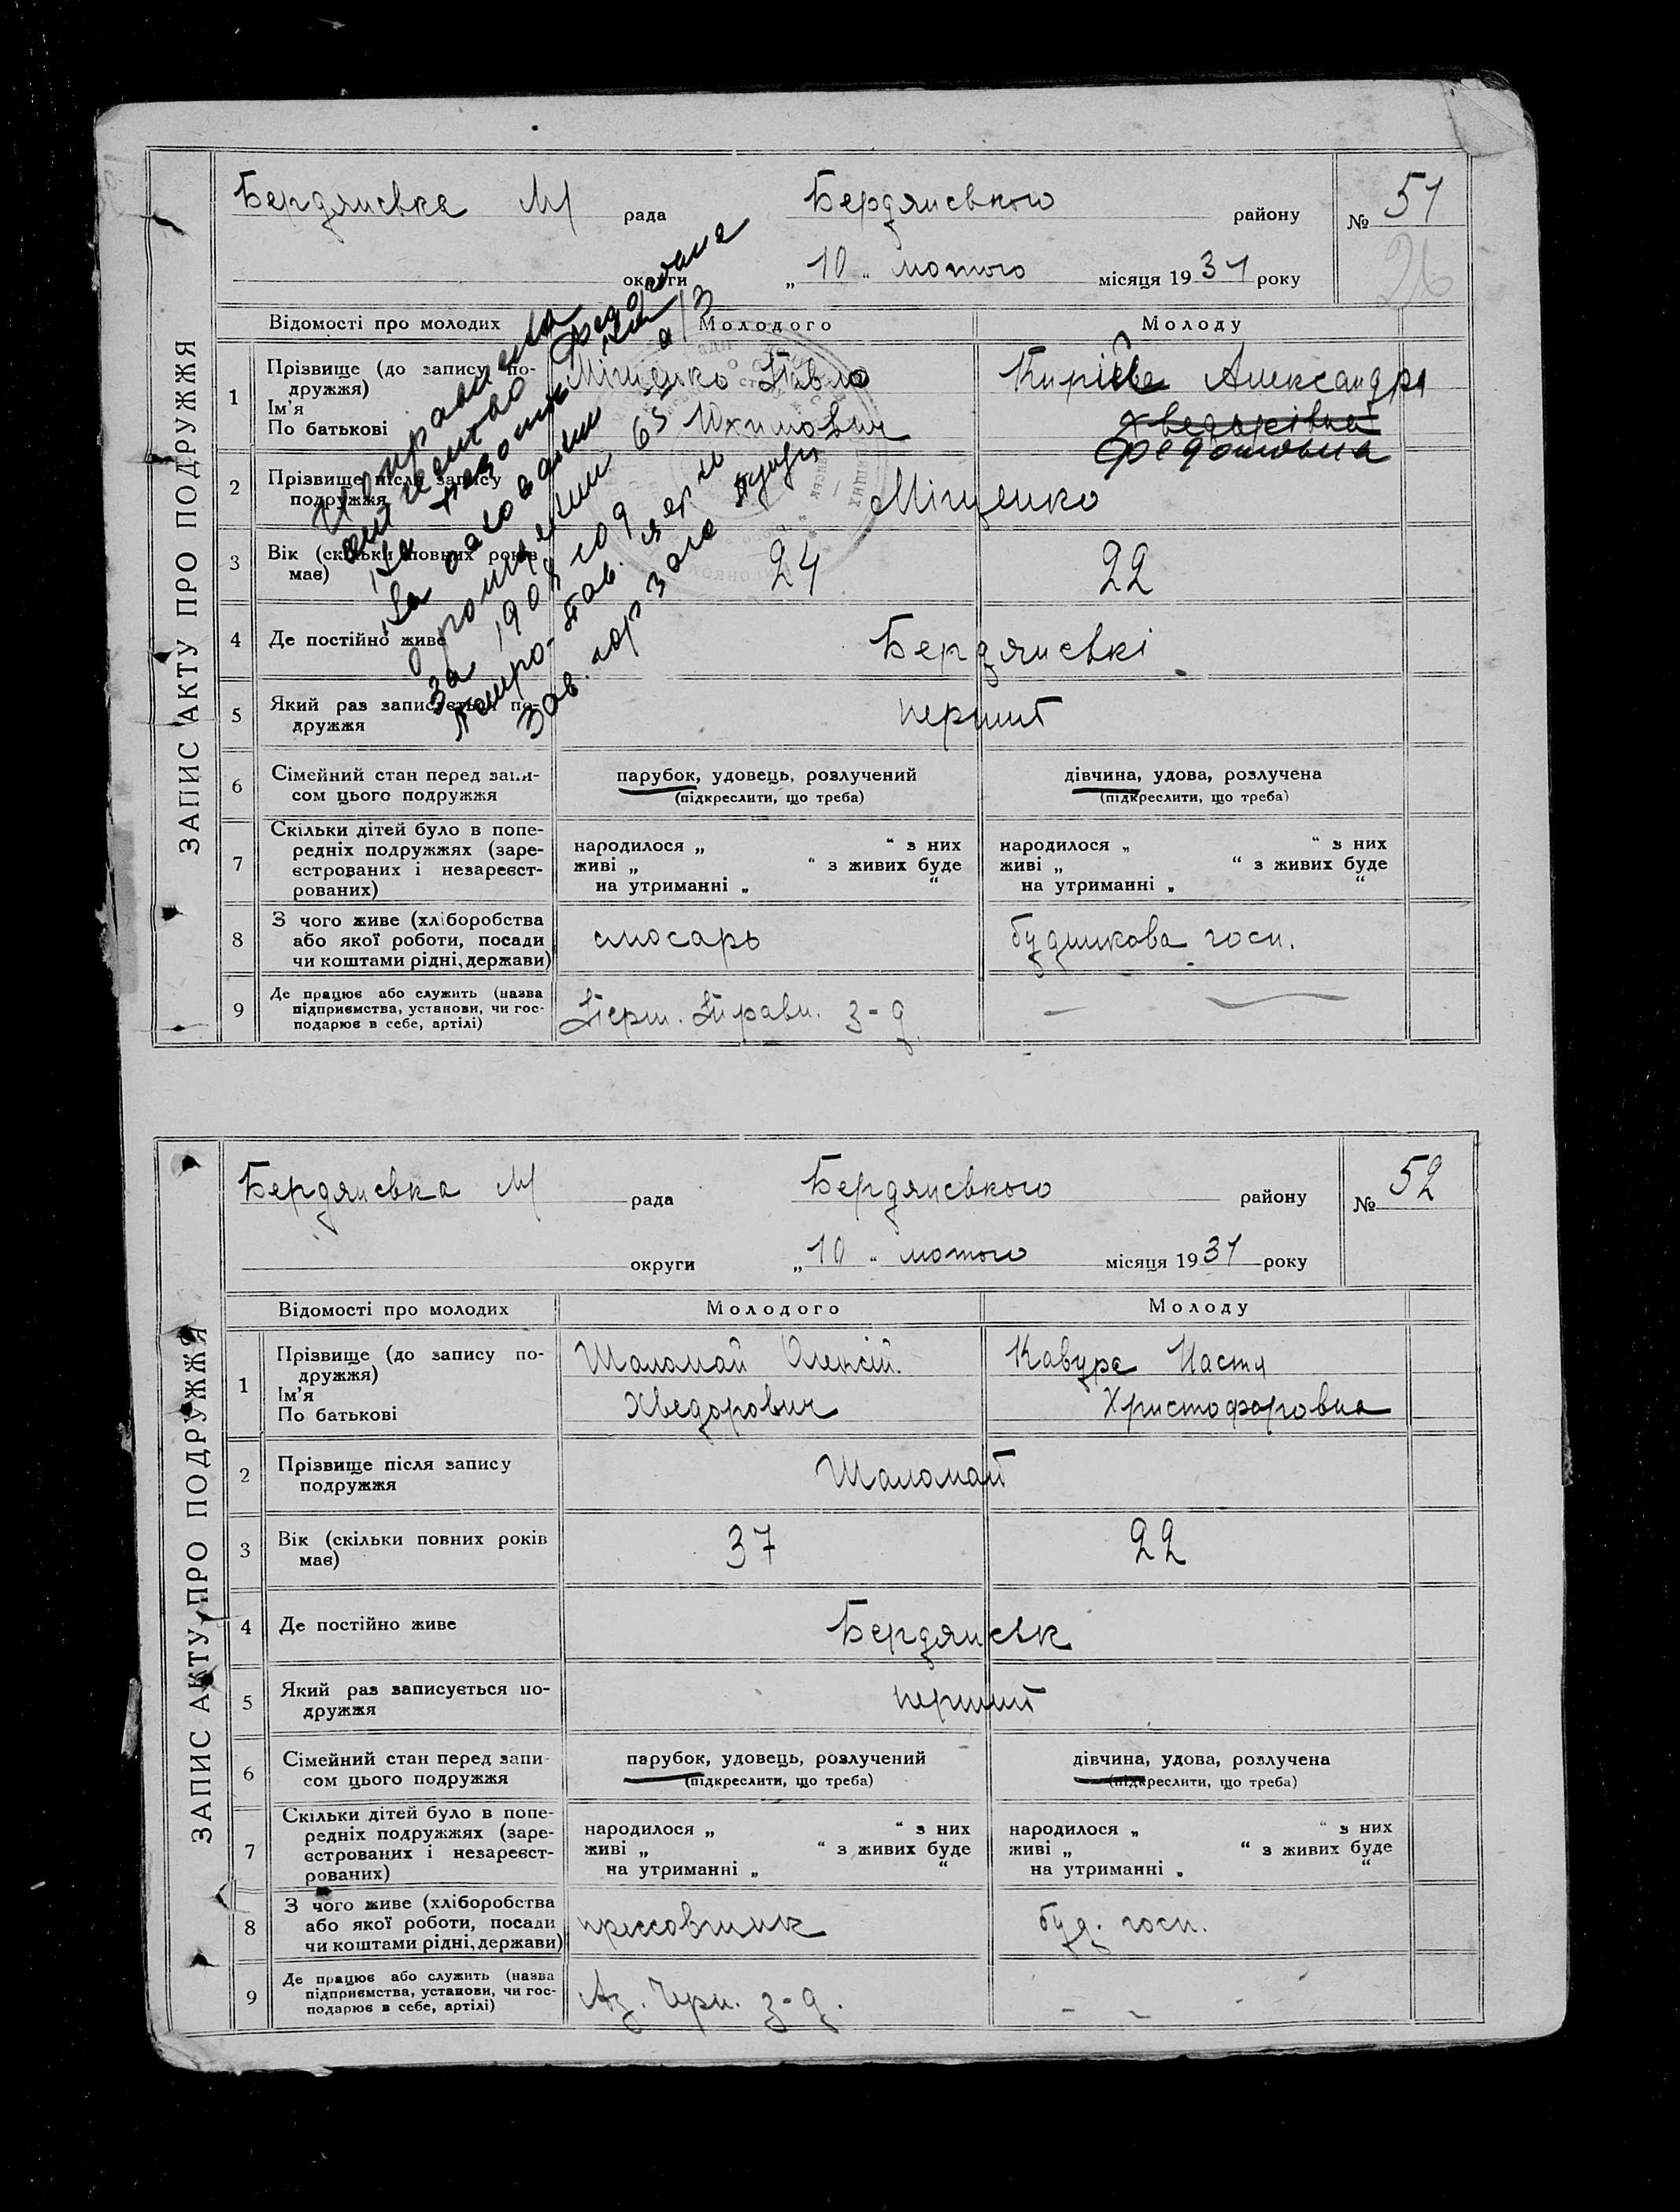 ЗАПИС АКТУ ПРО ПОДРУЖЖЯ
Бердянська М рада Бердянського району № 51
26
округи „10“ лютого місяця 1931 року
Відомості про молодих Молодого Молоду
1 Прізвище (до запису подружжя) Ім'я По батькові
Міщенко Павло
Юхимович
Кирієва Александра
Хведорівна
Федотовна
2 Прізвище після запису подружжя Міщенко
3 Вік (скільки повних років має) 24 22
4 Де постійно живе Бердянські
5 Який раз записується подружжя перший
6 Сімейний стан перед записом цього подружжя
парубок, удовець, розлучений
(підкреслити, що треба)
дівчина, удова, розлучена
(підкреслити, що треба)
7 Скільки дітей було в попередніх подружжях (зареєстрованих і незареєстрованих)
народилося „ “ з них
живі „ “ з живих буде
на утриманні „ “
народилося „ “ з них
живі „ “ з живих буде
на утриманні „ “
8 З чого живе (хліборобства або якої роботи, посади чи коштами рідні, держави)
слюсарь
будинкова госп.
9 Де працює або служить (назва підприємства, установи, чи господарює в себе, артілі)
Перш. Травн. з-д.
—
Исправленная
отчество Федотовна
на
на основании
за 1908 год
Зав. гор загс
ЗАПИС АКТУ ПРО ПОДРУЖЖЯ
Бердянська М рада Бердянського району № 52
округи „10“ лютого місяця 1931 року
Відомості про молодих Молодого Молоду
1 Прізвище (до запису подружжя) Ім'я По батькові
Шаламай Олексій.
Хведорович
Кавура Настя
Христофоровна
2 Прізвище після запису подружжя Шаламай
3 Вік (скільки повних років має) 37 22
4 Де постійно живе Бердянськ
5 Який раз записується подружжя перший
6 Сімейний стан перед записом цього подружжя
парубок, удовець, розлучений
(підкреслити, що треба)
дівчина, удова, розлучена
(підкреслити, що треба)
7 Скільки дітей було в попередніх подружжях (зареєстрованих і незареєстрованих)
народилося „ “ з них
живі „ “ з живих буде
на утриманні „ “
народилося „ “ з них
живі „ “ з живих буде
на утриманні „ “
8 З чого живе (хліборобства або якої роботи, посади чи коштами рідні, держави)
прессовщик
буд. госп.
9 Де працює або служить (назва підприємства, установи, чи господарює в себе, артілі)
Аз. Чрн. з-д.
- -